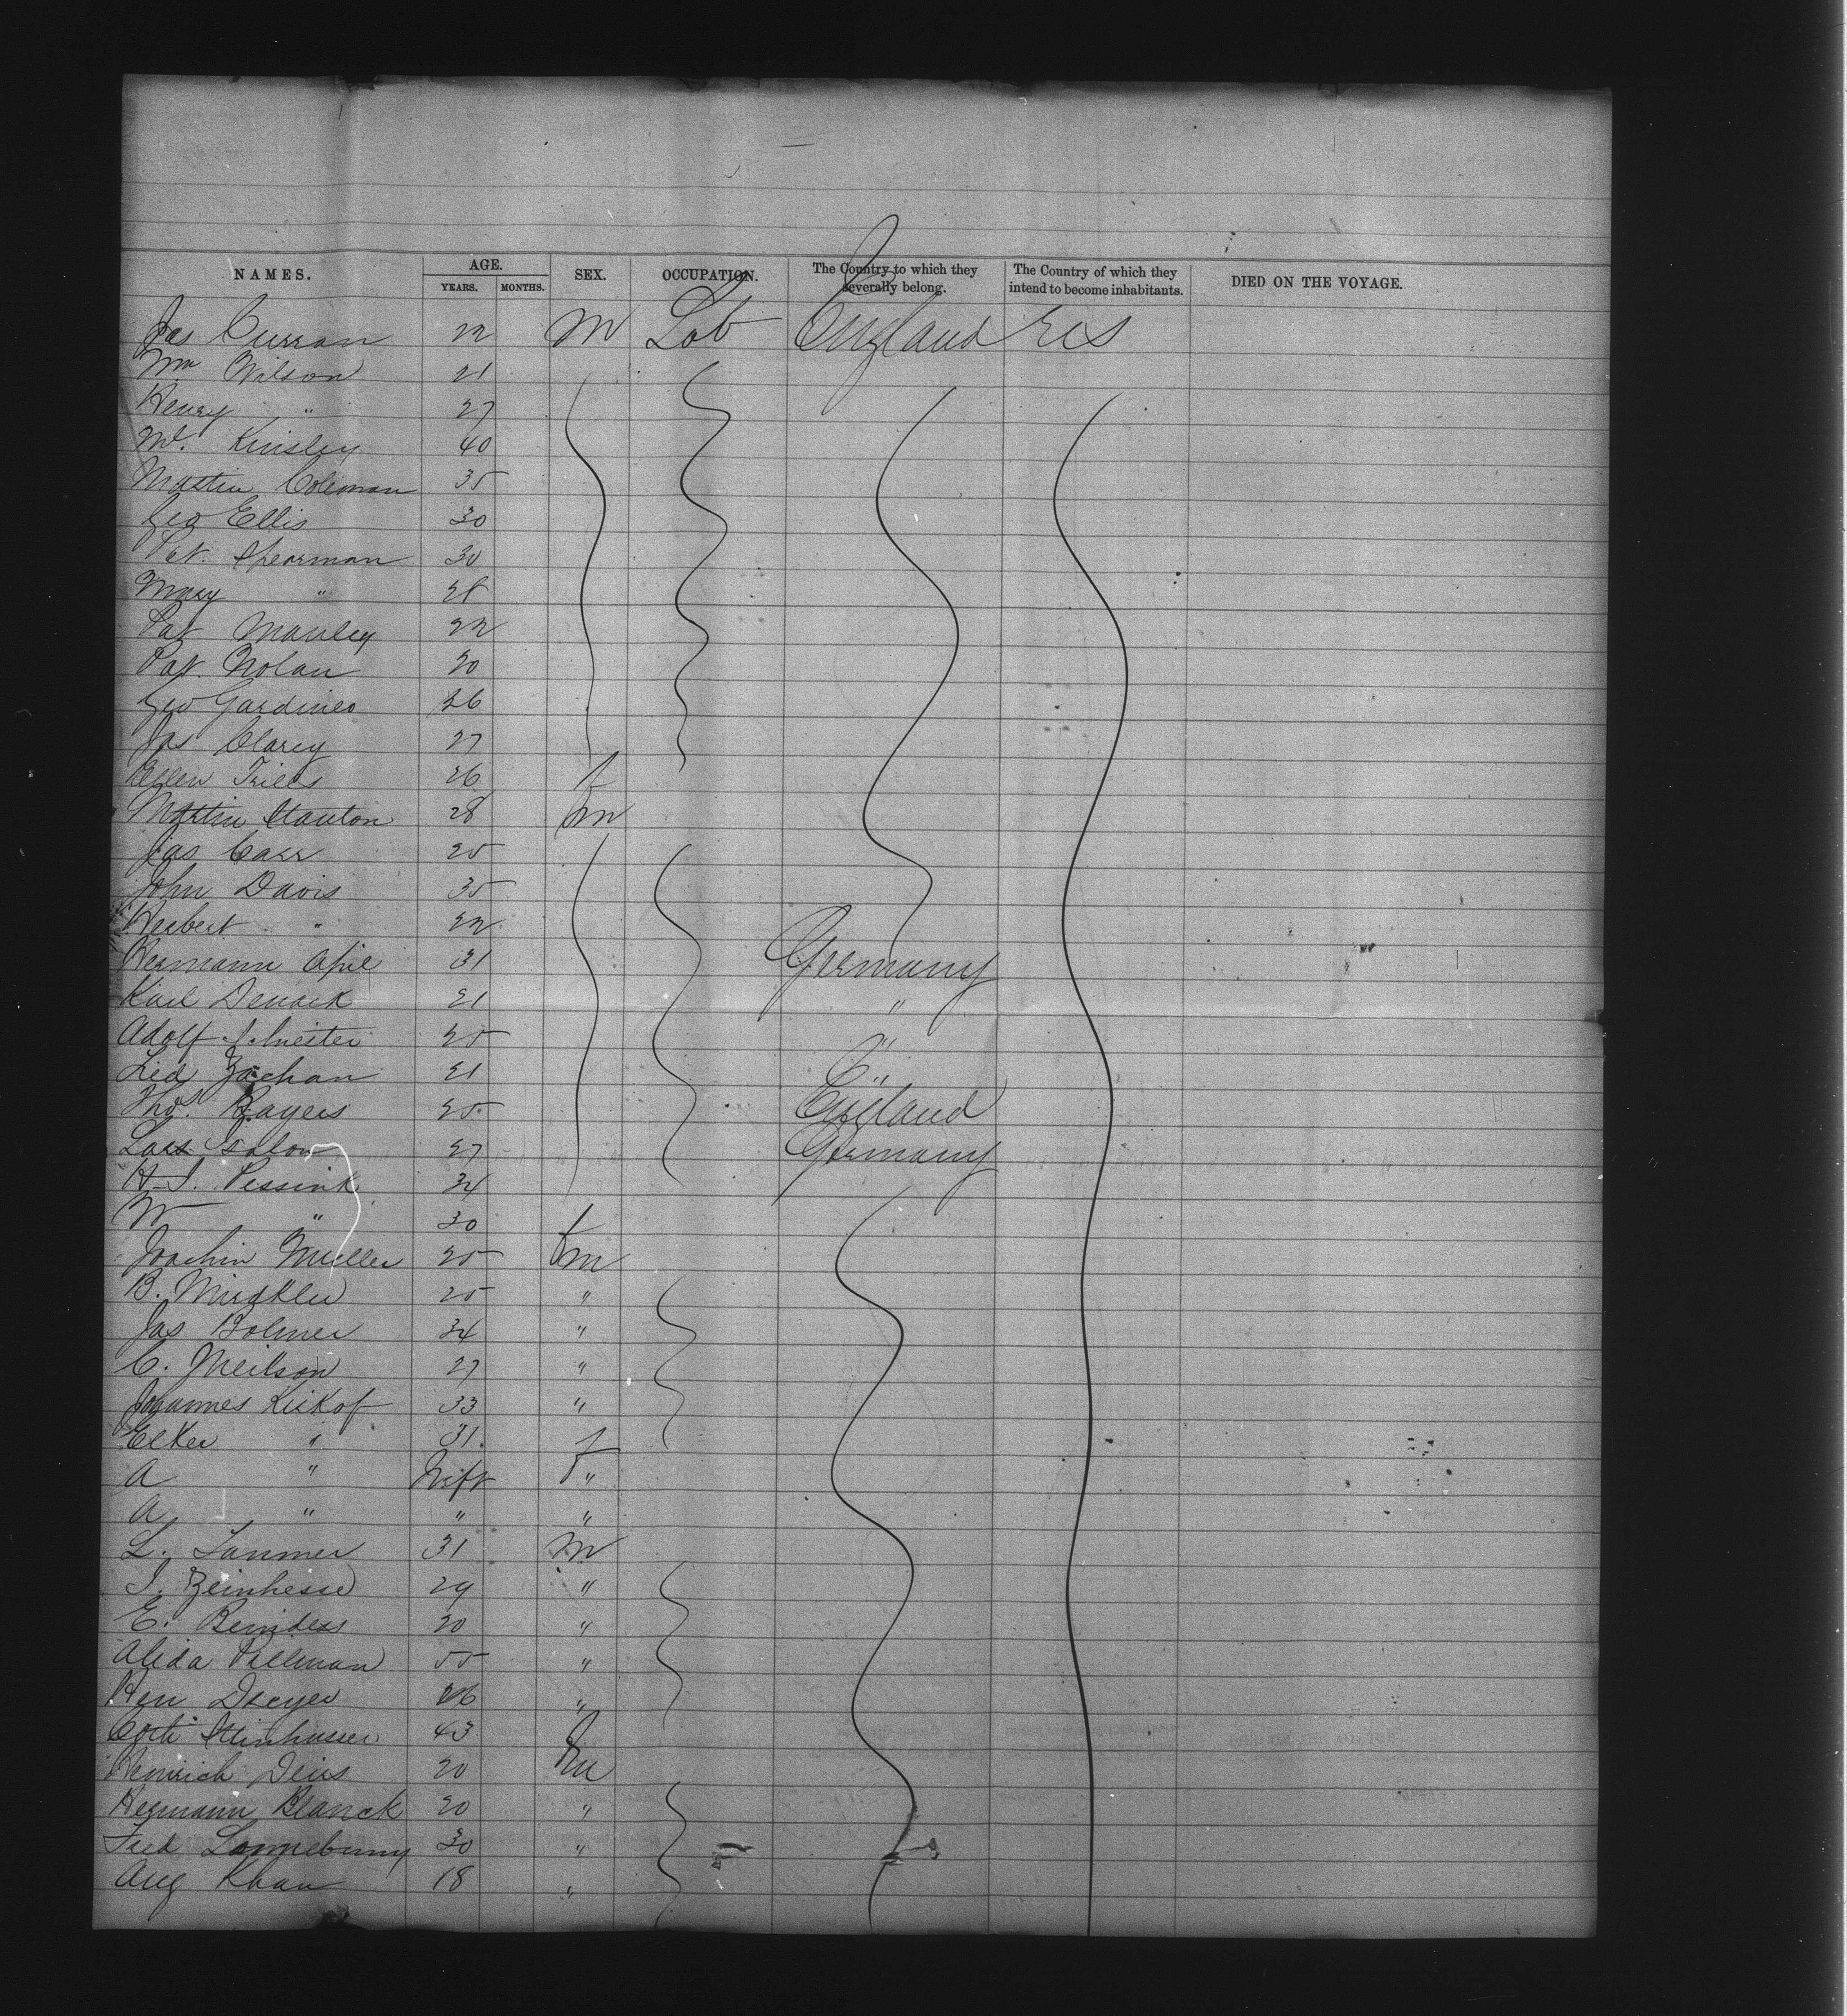 NAMES. AGE. YEARS. MONTHS. SEX. OCCUPATION. The Country to which they severally belong. The Country of which they intend to become inhabitants. DIED ON THE VOYAGE.
Jas Curran 22 M Lab England U S
Wm Wilson 21
Henry " 27
Kinsley 40
Martin Coleman 35
Geo Ellis 30
Pat. Spearman 30
Mary " 28
Pat Manley 22
Pat. Nolan 20
Geo Gardiner 26
Jas Clarey 27
Ellen 26 f
Martin Stanton 28 m
Jas Carr 25
John Davis 35
Herbert " 22
Hermann 31 Germany
Karl 21 "
Adolf 25 "
Zachan 21 "
Thos. Bayers 25 England
Lars 27 Germany
H. J. Pessink 34
" 30 f
Joachin Muller 25 m
B. 25 "
Jas Bolmer 34 "
C. Neilson 27 "
Johannes Kirkof 33 "
Elker " 31. f
A " Inft "
A " " "
L. 31 M
J. 29 "
E. Reinders 20 "
Alida Pellman 55 "
Hen Dreyer 26 "
43 f
Heinrich 20 m
Hermann Blanck 20 "
Fred 30 "
Aug Khan 18 "